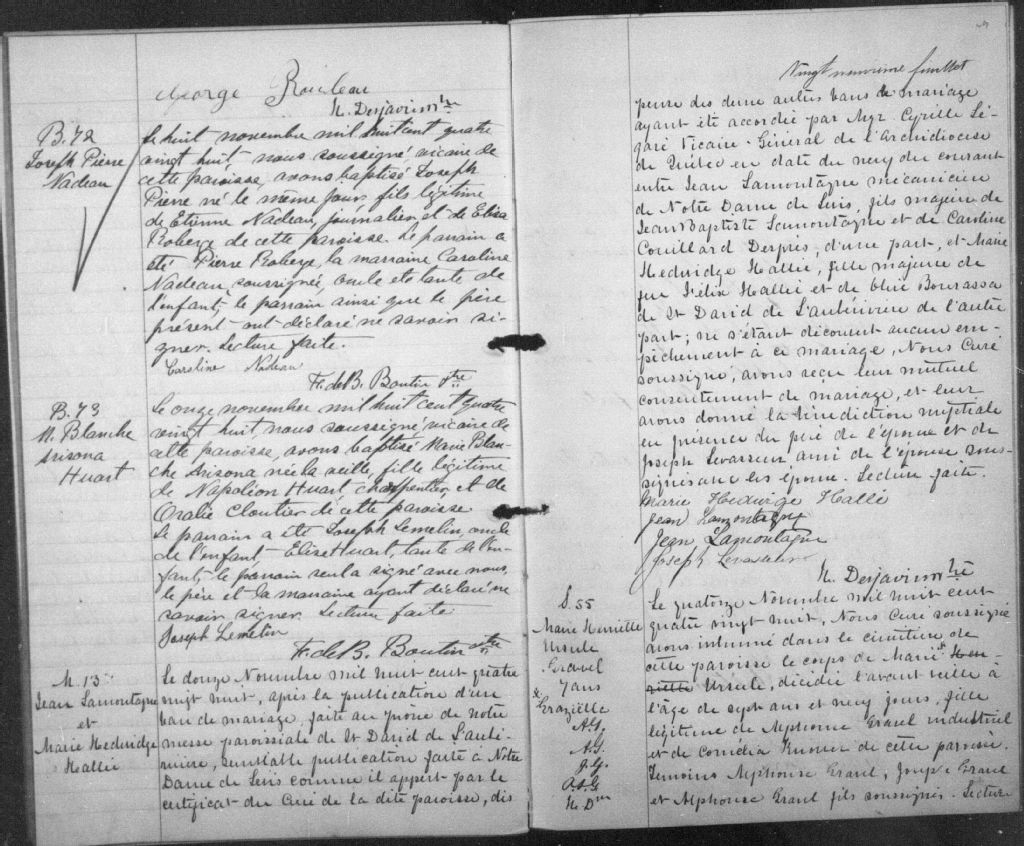 George Rouleau
N. Desjardins ptre
B. 72
Joseph Pierre
Nadeau
Le huit novembre mil huit cent quatre
vingt huit nous soussigné vicaire de
cette paroisse, avons baptisé Joseph
Pierre né le même jour, fils légitime
de Etienne Nadeau, journalier, et de Elisa
Roberge de cette paroisse. Le parrain a
été Pierre Roberge, la marraine Caroline
Nadeau soussignée, oncle et tante de
l'enfant, le parrain ainsi que le père
présent ont déclaré ne savoir si-
gner. Lecture faite.
Caroline Nadeau
F. de B. Boutin ptre
B. 73
M. Blanche
Arisona
Huart
Le onze novembre mil huit cent quatre
vingt huit, nous soussigné, vicaire de
cette paroisse, avons baptisé Marie Blan-
che Arisona née la veille, fille légitime
de Napoléon Huart charpentier, et de
Oralie Cloutier de cette paroisse
Le parrain a été Joseph Lemelin, oncle
de l'enfant Elise Huart, tante de l'en-
fant, le parrain seul a signé avec nous,
le père et la marraine ayant déclaré ne
savoir signer. Lecture faite
Joseph Lemelin
F. de B. Boutin ptre
M. 13
Jean Lamontagne
et
Marie Hedwidge
Hallie
Le douze Novembre mil huit cent quatre
vingt huit, après la publication d'un
ban de mariage, faite au prône de notre
messe paroissiale de St David de L'aube-
rivière, semblable publication faite à Notre
Dame de Levis comme il appert par le
certificat du Curé de la dite paroisse, dis
Vingt neuvième feuillet
pense des deux autres bans de mariage
ayant été accordée par Mgr. Cyrille Lé-
garé Vicaire-Général de l'Archidiocèse
de Québec en date du neuf du courant
entre Jean Lamontagne mécanicien
de Notre Dame de Levis, fils majeur de
Jean Baptiste Lamontagne et de Caroline
Couillard Desprès, d'une part, et Marie
Hedwidge Hallie, fille majeure de
feu Félix Hallie et de Bourassa
de St David de L'auberivière de l'autre
part; ne s'étant découvert aucun em-
pêchement à ce mariage, Nous Curé
soussigné, avons reçu leur mutuel
consentement de mariage, et leur
avons donné la bénédiction nuptiale
en présence du père de l'époux et de
Joseph Levasseur ami de l'épouse sous-
signés avec les époux. Lecture faite.
Marie Hedwige Hallé
Jean Lamontagne
Jean Lamontagne
Joseph Levasseur
N. Desjardins ptre
S. 55
Marie Henriette
Ursule
Gravel
7 ans
& Graziëlle
A.G.
A.G.
J.G.
A.G.
N. Dns
Le quatorze Novembre mil huit cent
quatre vingt huit, Nous Curé soussigné
avons inhumé dans le cimetière de
cette paroisse le corps de Marie Hen-
riette Ursule, décédée l'avant veille à
l'âge de sept ans et neuf jours, fille
légitime de Alphonse Gravel industriel
et de Cornélia de cette paroisse.
Temoins Alphonse Gravel, Joseph Gravel
et Alphonse Gravel fils soussignés. Lecture